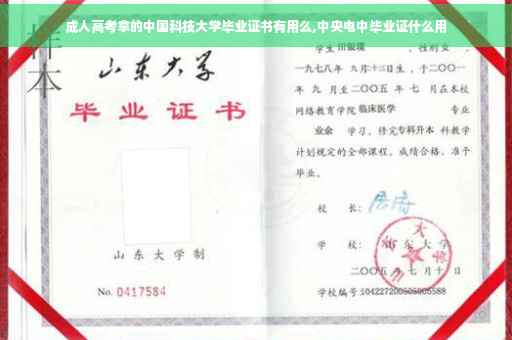 成人高考拿的中国科技大学毕业证书有用么,中央电中毕业证什么用
样本
山东大学
毕业证书
山东大学制
No. 0417584
学生 田银瑞 ,性别女 ,
一九七八年 九月十三日生,于二〇〇一
年 九 月至二〇〇五 年 七 月在本校
网络教育学院 临床医学 专业
业余 学习,修完专科升本 科教学
计划规定的全部课程,成绩合格,准予
毕业。
校 长:
学 校: 山东大学
二〇〇五 年 七 月 十 日
学校编号:104227200505005588